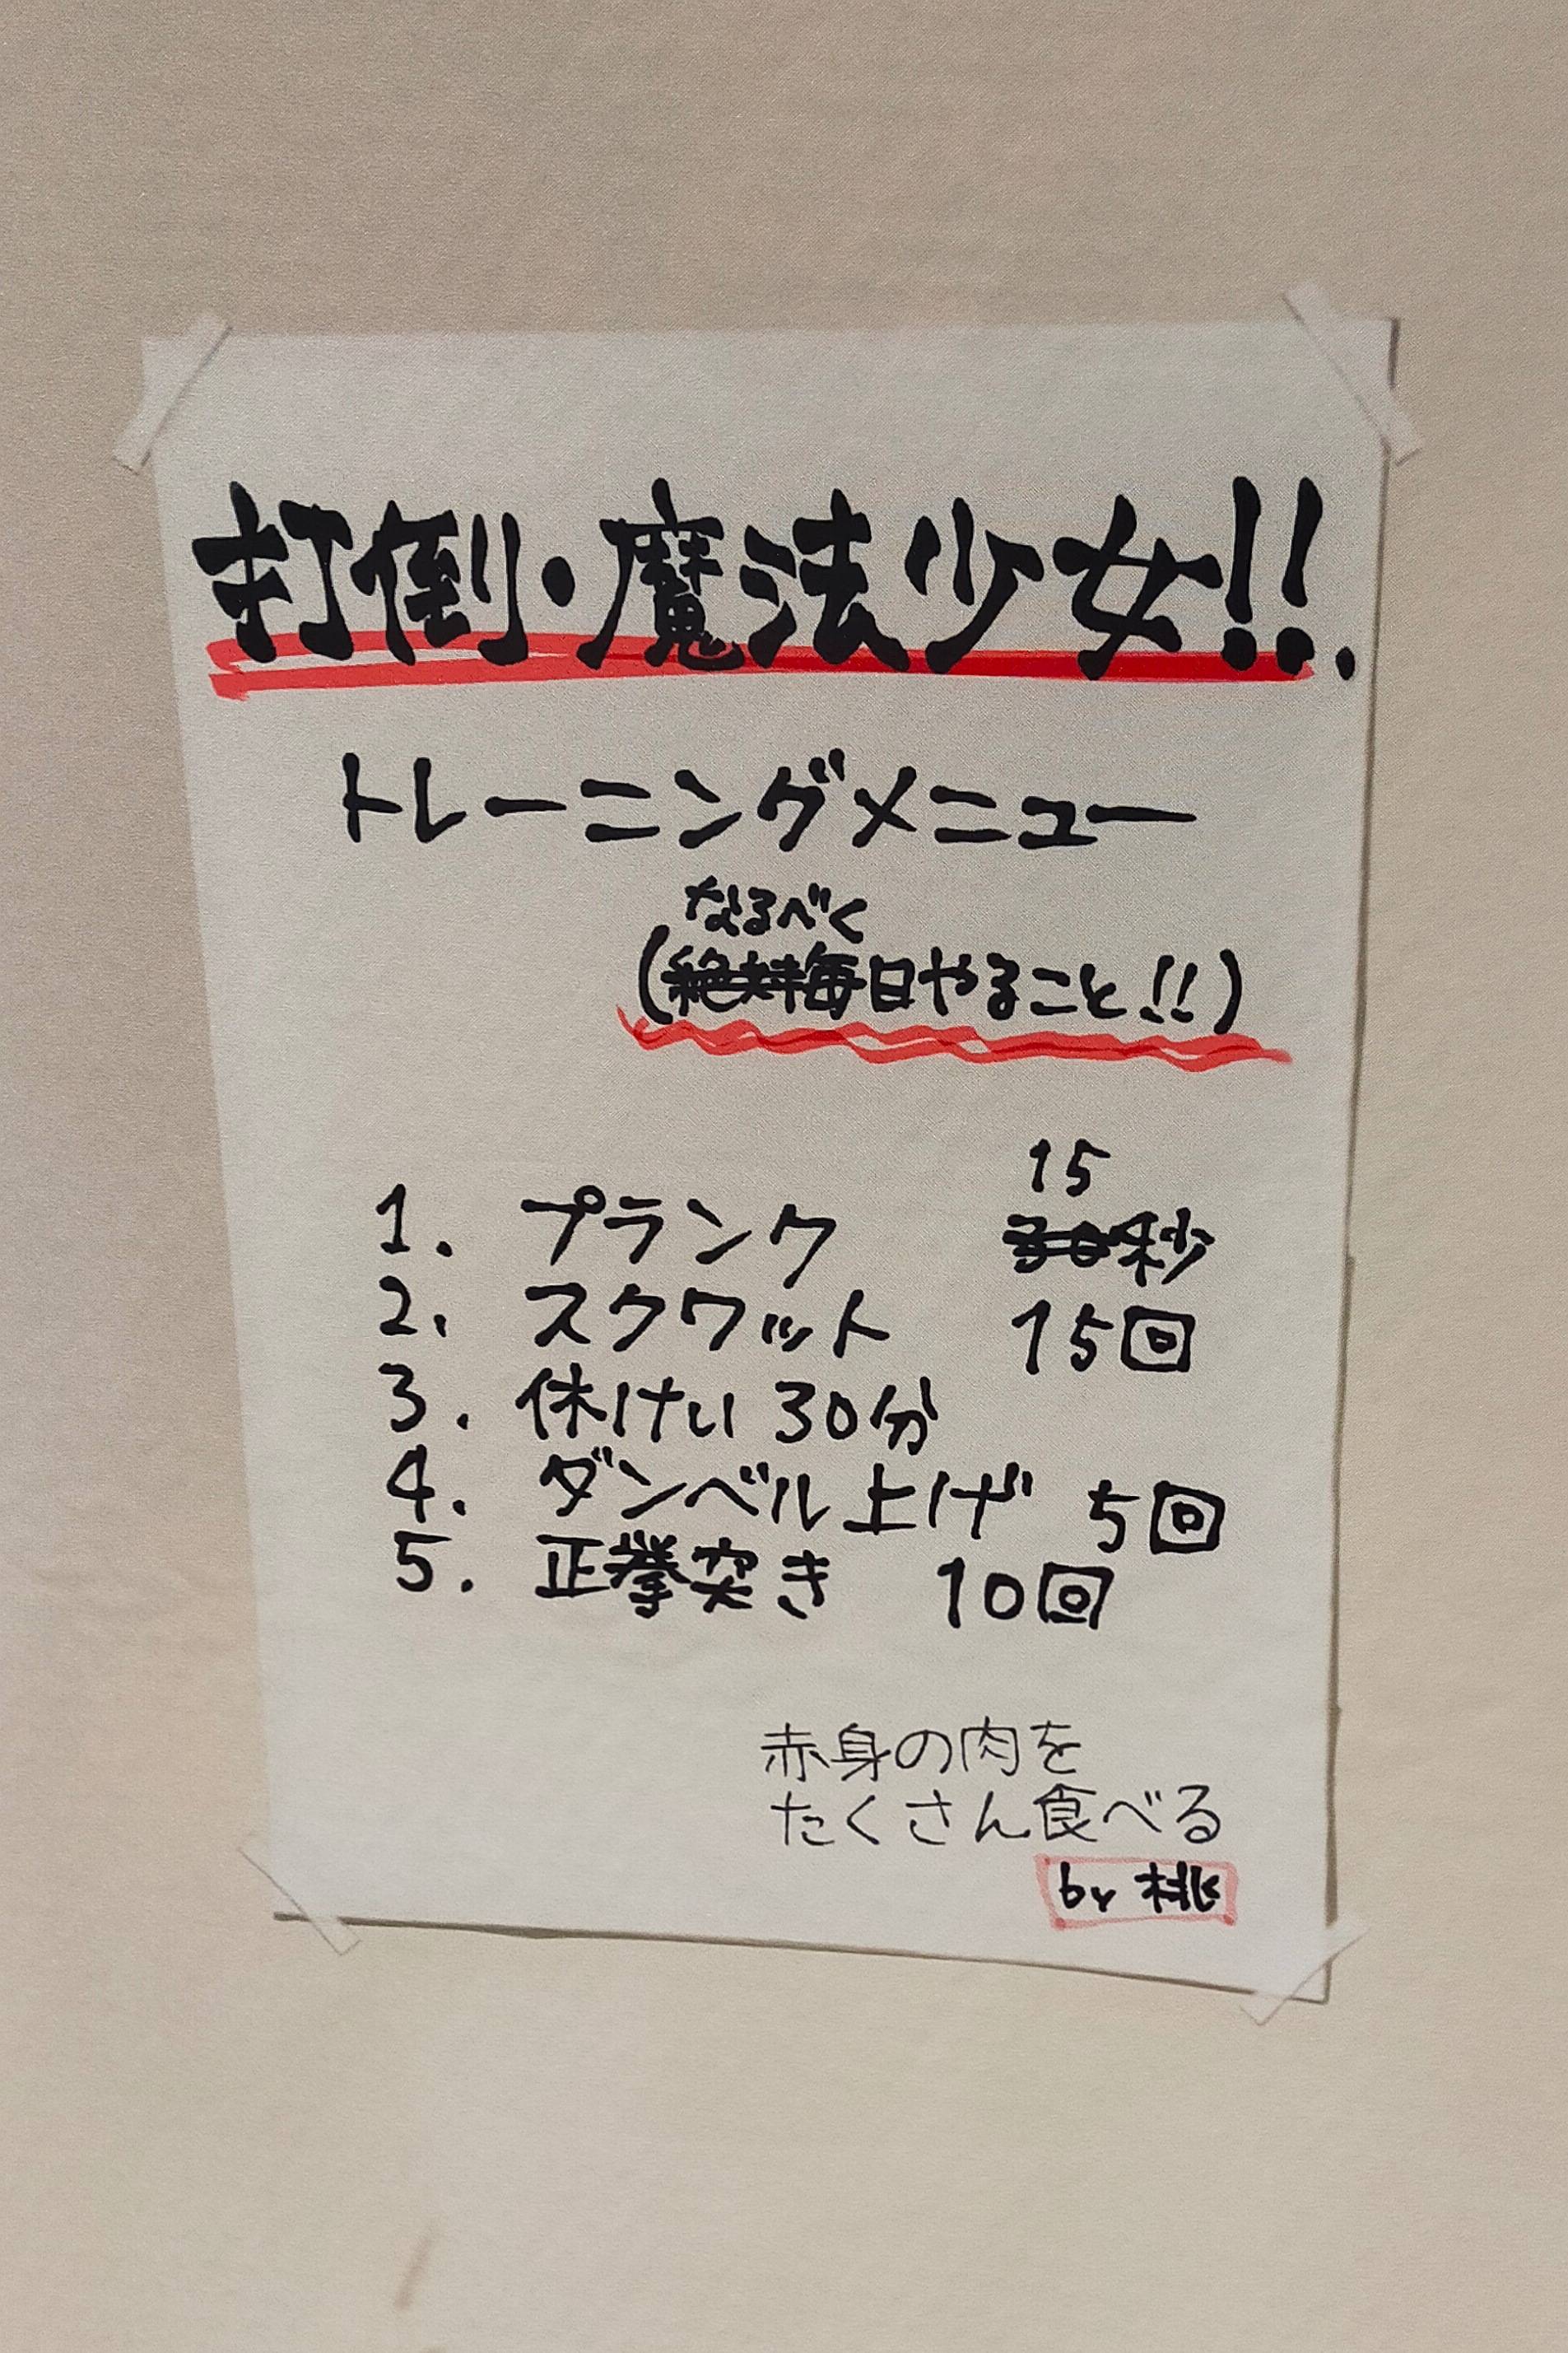 打倒・魔法少女!!.
トレーニングメニュー
なるべく
(絶対毎日やること!!)
15
1. プランク 30秒
2. スクワット 15回
3. 休けい 30分
4. ダンベル上げ 5回
5. 正拳突き 10回
赤身の肉を
たくさん食べる
by 桃